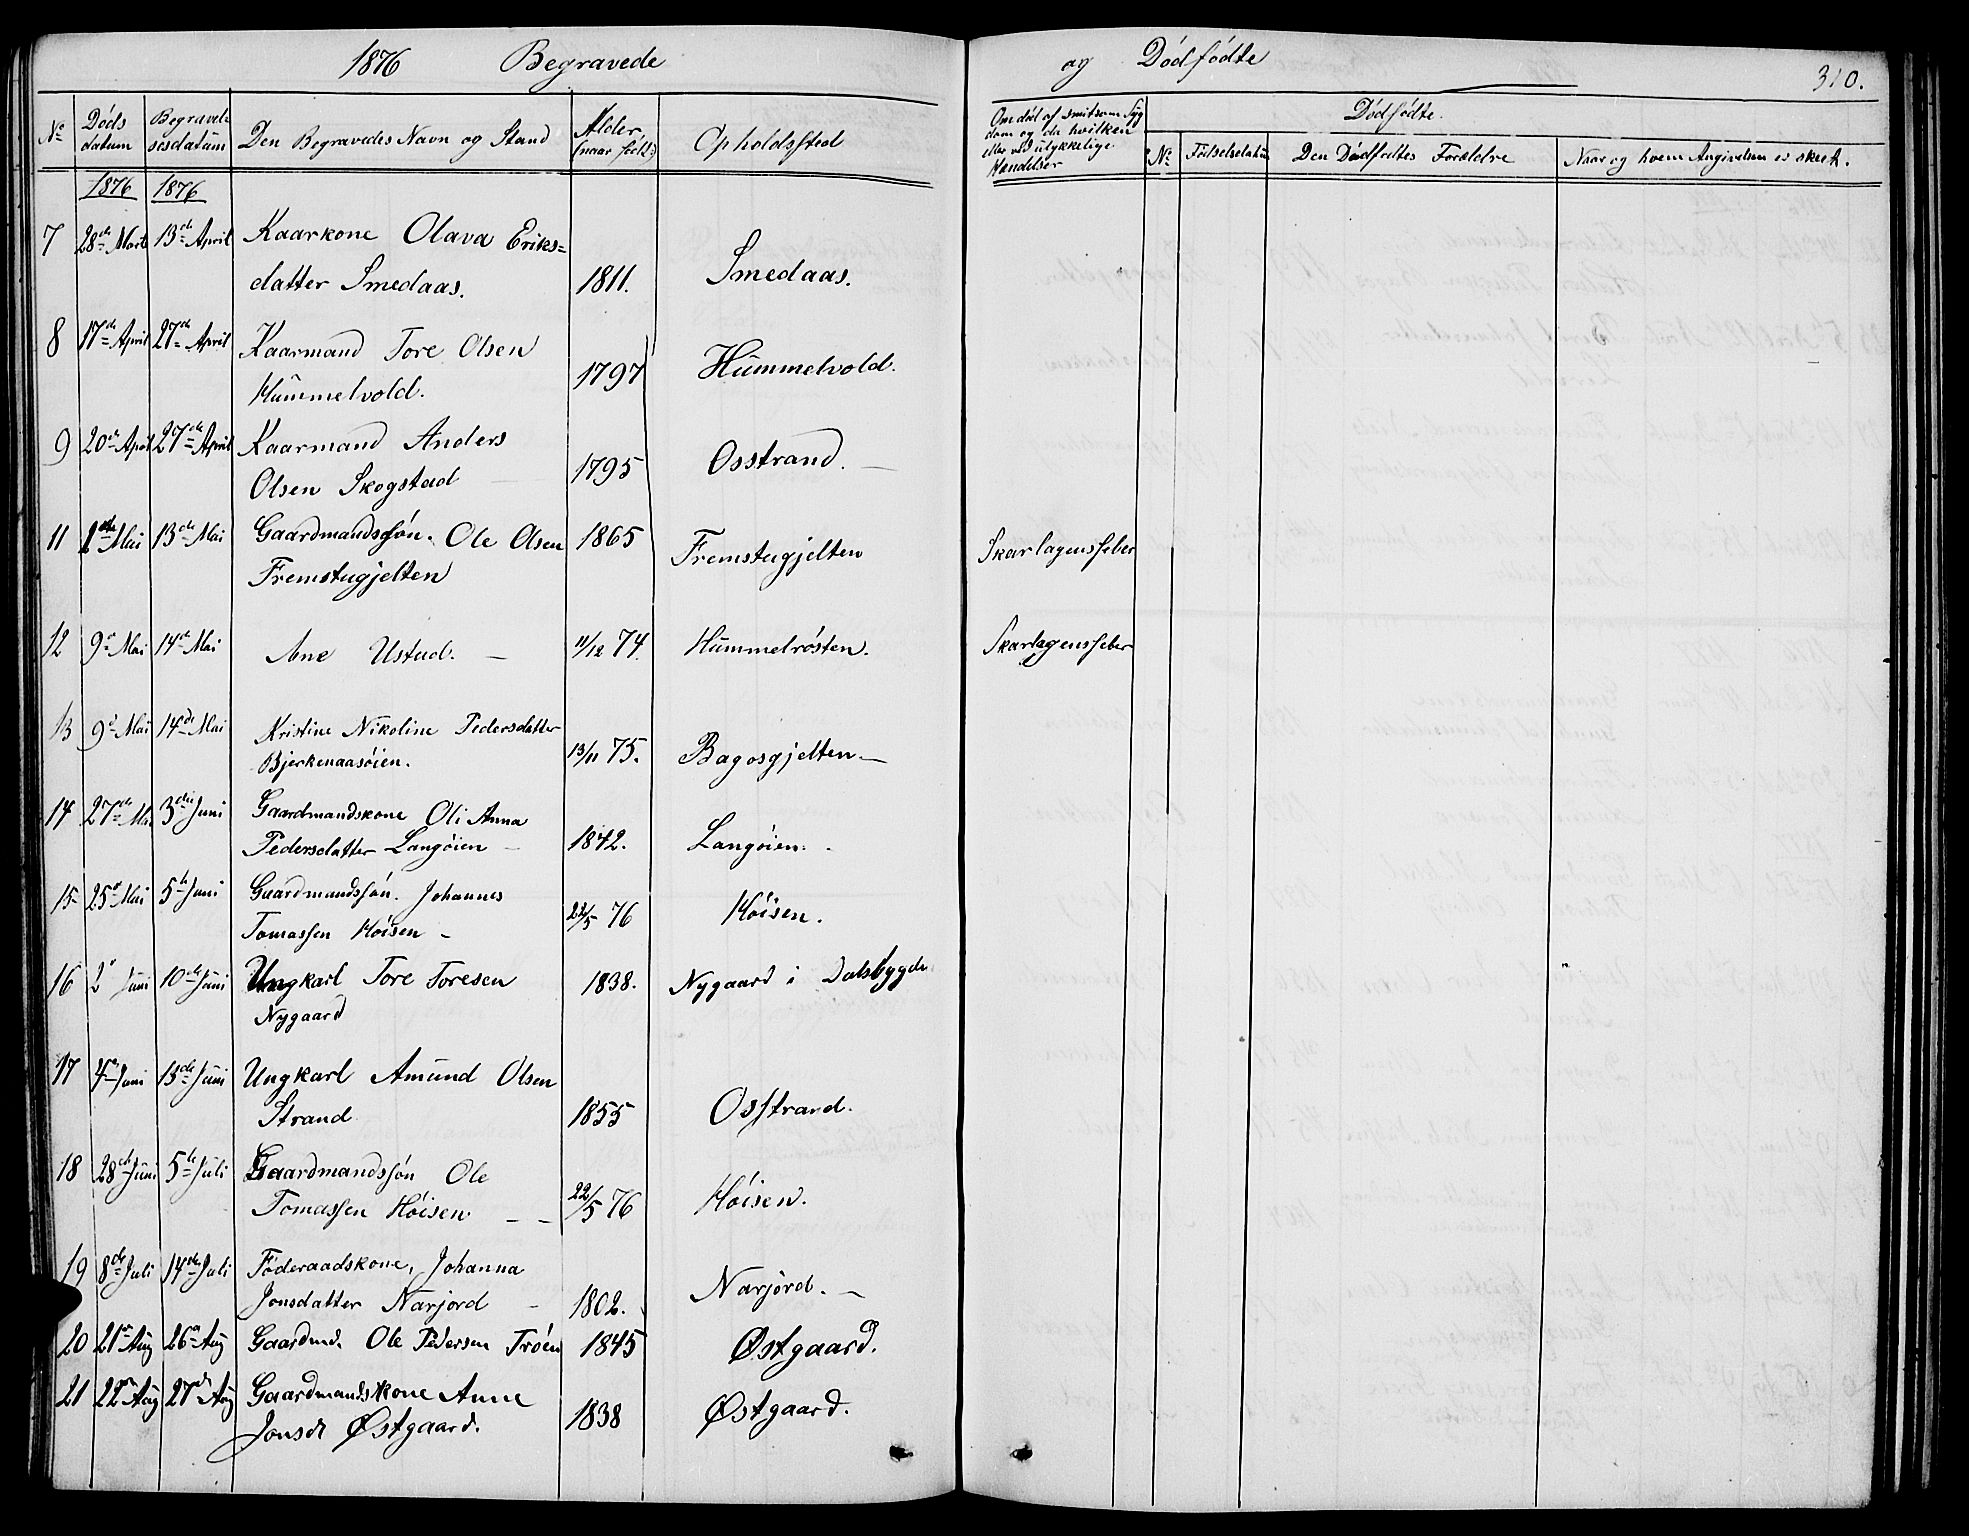 1876 Begravede og Dødfødte 310.
No Døds datum Begravelsesdatum Den Begravedes Navn og Stand Alder (naar født) Opholdssted Om død af smitsom Sygdom og da hvilken eller ved ulykkelige Hændelser
Dødfødte.
No Fødselsdatum Den Dødfødtes Forældre Naar og hvem Angivelsen er skeet.
1876 1876
7 28de Marts 13de April Kaarkone Olava Eriks=
datter Smedaas. 1811. Smedaas.
8 17de April 27de April Kaarmand Tore Olsen
Hummelvold. 1797 Hummelvold.
9 20de April 27de April Kaarmand Anders
Olsen Skogstad 1795 Osstrand.
11 Mai 13de Mai Gaardmandssøn. Ole Olsen 1865 Fremstugjelten Skarlagensfeber
Fremstugjelten
12 9de Mai 14de Mai Ane Ustad. 11/12 74. Hummelrøsten. Skarlagensfeber
13 9de Mai 14de Mai Kristine Nikoline Pedersdatter
Bjerkenaasøien. 13/11 75. Bagosgjelten
14 27de Mai 3die Juni Gaardmandskone Oli Anna
Pedersdatter Langøien 1842. Langøien.
15 25de Mai 5te Juni Gaardmandssøn. Johannes
Tomassen Høisen 22/5 76 Høisen.
16 2den Juni 10de Juni Ungkarl Tore Toresen 1838. Nygaard i Dalsbygden
Nygaard
17 4de Juni 13de Juni Ungkarl Amund Olsen
Strand 1855 Osstrand.
18 28de Juni 5te Juli Gaardmandssøn Ole
Tomassen Høisen 22/5 76 Høisen.
19 8de Juli 14de Juli Føderaadskone, Johanna
Jonsdatter Narjord 1802. Narjord.
20 21de Aug 26de Aug Gaardmd. Ole Pedersen Trøen 1845 Østgaard.
21 22de Aug 27de Aug Gaardmandskone Anne
Jonsdt Østgaard. 1838 Østgaard.